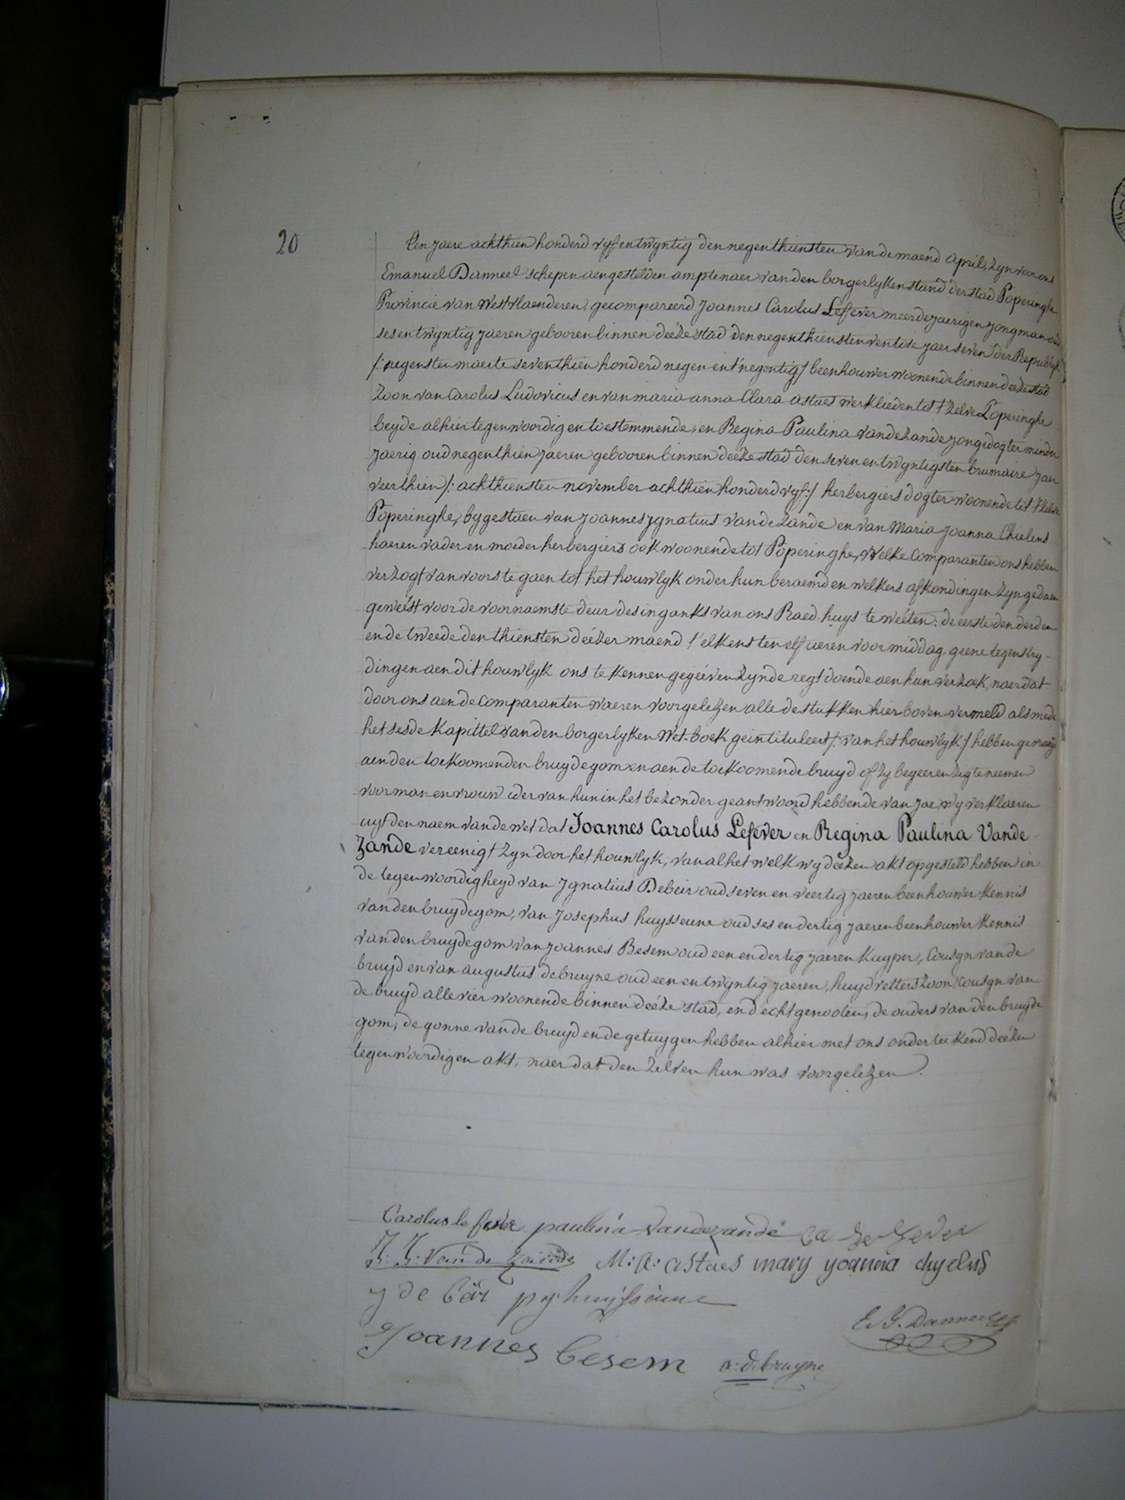 20
Ten jaere achthien honderd vyfentwyntig den negenthiensten van de maend april, zyn van ons
Emanuel Danneel schepen aengestelden amptenaer van den borgerlyken stand der stad Poperinghe
Provincie van Westvlaenderen, gecompareerd Joannes Carolus Lefever meerderjaerigen jongman oud
sesentwyntig jaeren gebooren binnen deeze stad den negenthiensten ventôse jaer seven der Republyk
/: negensten maerte seventhien honderd negen-en't negentig / beenhouwer woonende binnen deeze stad
Zoon van Carolus Ludovicus en van maria anna Clara astaes werklieden tot t'zelve Poperinghe
beyde alhier tegenwoordig en toestemmende, en Regina Paulina vande Zande jongedogter minder
jaerig oud negenthien jaeren gebooren binnen deeze stad den seven en twyntigsten brumaire jaer
veerthien /: achthiensten november achthien honderd vyf :/ herbergiers dogter woonende tot t'zelve
Poperinghe, bygestaen van Joannes Ignatius vande Zande en van Maria Joanna Chielens
haeren vader en moeder herbergiers ook woonende tot Poperinghe, Welke Comparanten ons hebben
verzogt van voorste gaen tot het houwlyk onder hun beraemd en welkers afkondingen zyn gedaen
geweést voor de voornaemste deur des ingankx van ons Raedhuys te weéten: de eerste den derden
ende tweede den thiensten deézer maend t'elkens ten elf ueren voormiddag, geene tegenstry-
dingen aen dit houwlyk ons te kennen gegeéven zynde regt doende aen hun verzoek, naer dat
door ons aen de Comparanten waeren voorgelezen alle de stukken hier boven vermeld als mede
het sesde Kapittel van den borgerlyken Wet-boek geintituleert /: van het houwlyk / hebben gevraegt
aen den toekoomenden bruydegom en aen de toekoomende bruyd of zy begeeren zig te neemen
voor man en vrouw ider van hun in het bezonder geantwoord hebbende van jae, wy verklaeren
uyt den naem van de wet dat Joannes Carolus Lefever en Regina Paulina Vande
Zande vereenigt zyn door het houwlyk, van al het welk wy deézen akt opgesteld hebben in
de tegenwoordigheyd van Ignatius Debeir oud seven en veertig jaeren beenhouwer kennis
van den bruydegom, van Josephus huysseune oud ses en dertig jaeren beenhouwer kennis
van den bruydegom van Joannes Besem oud een en dertig jaeren kuyper, Cousyn van de
bruyd en van augustus debruyne oud een en twyntig jaeren, huydvetters zoon cousyn van
de bruyd alle vier woonende binnen deeze stad, en d'echtgenooten, de ouders van den bruyde
gom, de gonne van de bruyd en de getuygen hebben alhier met ons onderteekend deézen
tegenwoordigen akt, naer dat den zelven hun was voorgelezen.
Carolus le fever paulina vandezande
J: J: Van de Zande M: A: astaes mary yoanna chyelens
y de Beir huysseune
E. J. Danneel
Joannes besem a: d: bruyne